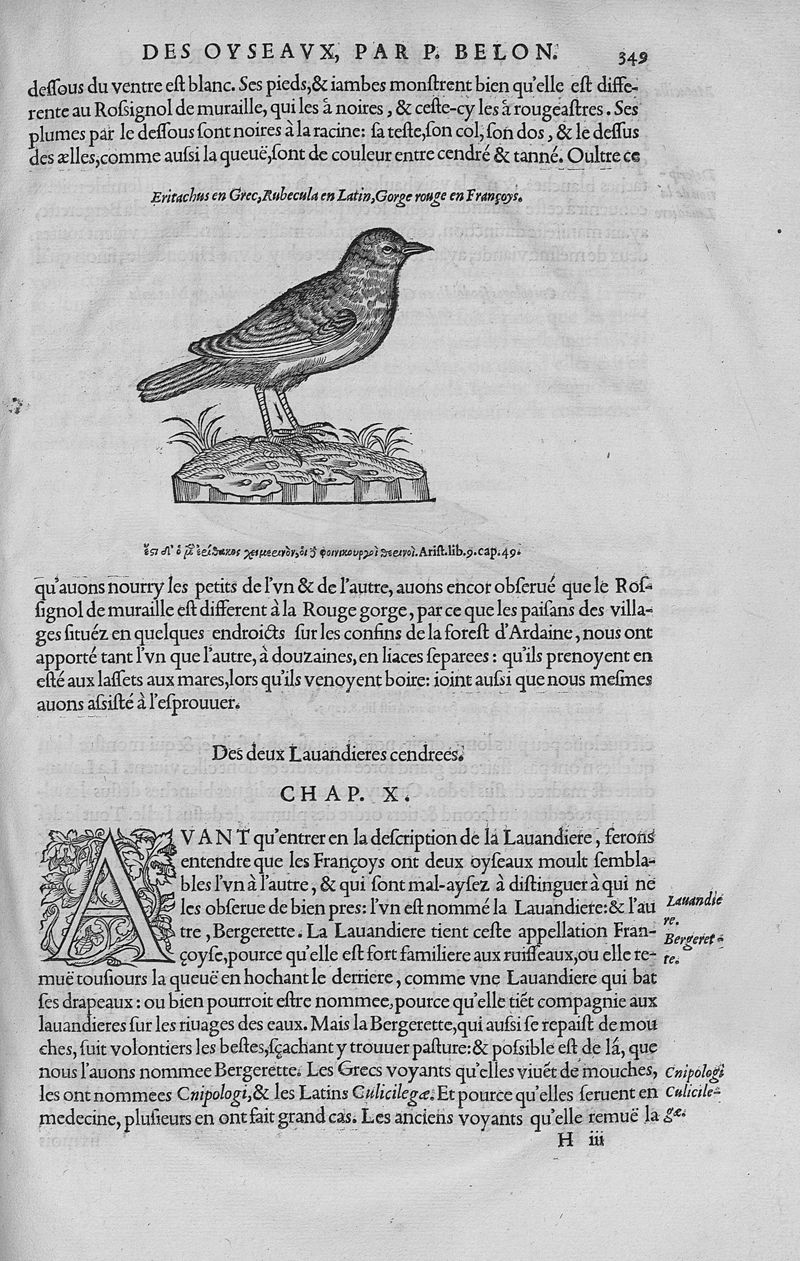 DES OYSEAVX, PAR P. BELON. 349
deſſous du ventre eſt blanc. Ses pieds, & iambes monſtrent bien qu'elle eſt diffe-
rente au Roſsignol de muraille, qui les à noires, & ceſte-cy les à rougeaſtres. Ses
plumes par le deſſous ſont noires à la racine: ſa teſte, ſon col, ſon dos, & le deſſus
des ælles, comme auſsi la queuë, ſont de couleur entre cendré & tanné. Oultre ce
Eritachus en Grec, Rubecula en Latin, Gorge rouge en Françoys.
Ariſt. lib. 9. cap. 49.
qu'auons nourry les petits de l'vn & de l'autre, auons encor obſerué que le Roſ-
ſignol de muraille eſt different à la Rouge gorge, par ce que les paiſans des villa-
ges ſituéz en quelques endroicts ſur les confins de la foreſt d'Ardaine, nous ont
apporté tant l'vn que l'autre, à douzaines, en liaces ſeparees: qu'ils prenoyent en
eſté aux laſſets aux mares, lors qu'ils venoyent boire: ioint auſsi que nous meſmes
auons aſsiſté à l'eſprouuer.
Des deux Lauandieres cendrees.
CHAP. X.
AVANT qu'entrer en la deſcription de la Lauandiere, ferons
entendre que les Françoys ont deux oyſeaux moult ſembla-
bles l'vn à l'autre, & qui ſont mal-ayſez à diſtinguer à qui ne
les obſerue de bien pres: l'vn eſt nommé la Lauandiere: & l'au
tre, Bergerette. La Lauandiere tient ceſte appellation Fran-
çoyſe, pource qu'elle eſt fort familiere aux ruiſſeaux, ou elle re-
muë touſiours la queuë en hochant le derriere, comme vne Lauandiere qui bat
ſes drapeaux: ou bien pourroit eſtre nommee, pource qu'elle tiẽt compagnie aux
lauandieres ſur les riuages des eaux. Mais la Bergerette, qui auſsi ſe repaiſt de mou
ches, ſuit volontiers les beſtes, ſçachant y trouuer paſture: & poſsible eſt de là, que
nous l'auons nommee Bergerette. Les Grecs voyants qu'elles viuẽt de mouches,
les ont nommees Cnipologi, & les Latins Culicilegæ. Et pource qu'elles ſeruent en
medecine, pluſieurs en ont fait grand cas. Les anciens voyants qu'elle remuë la
Lauandie
re.
Bergeret-
te.
Cnipologi
Culicile-
gæ.
H iii